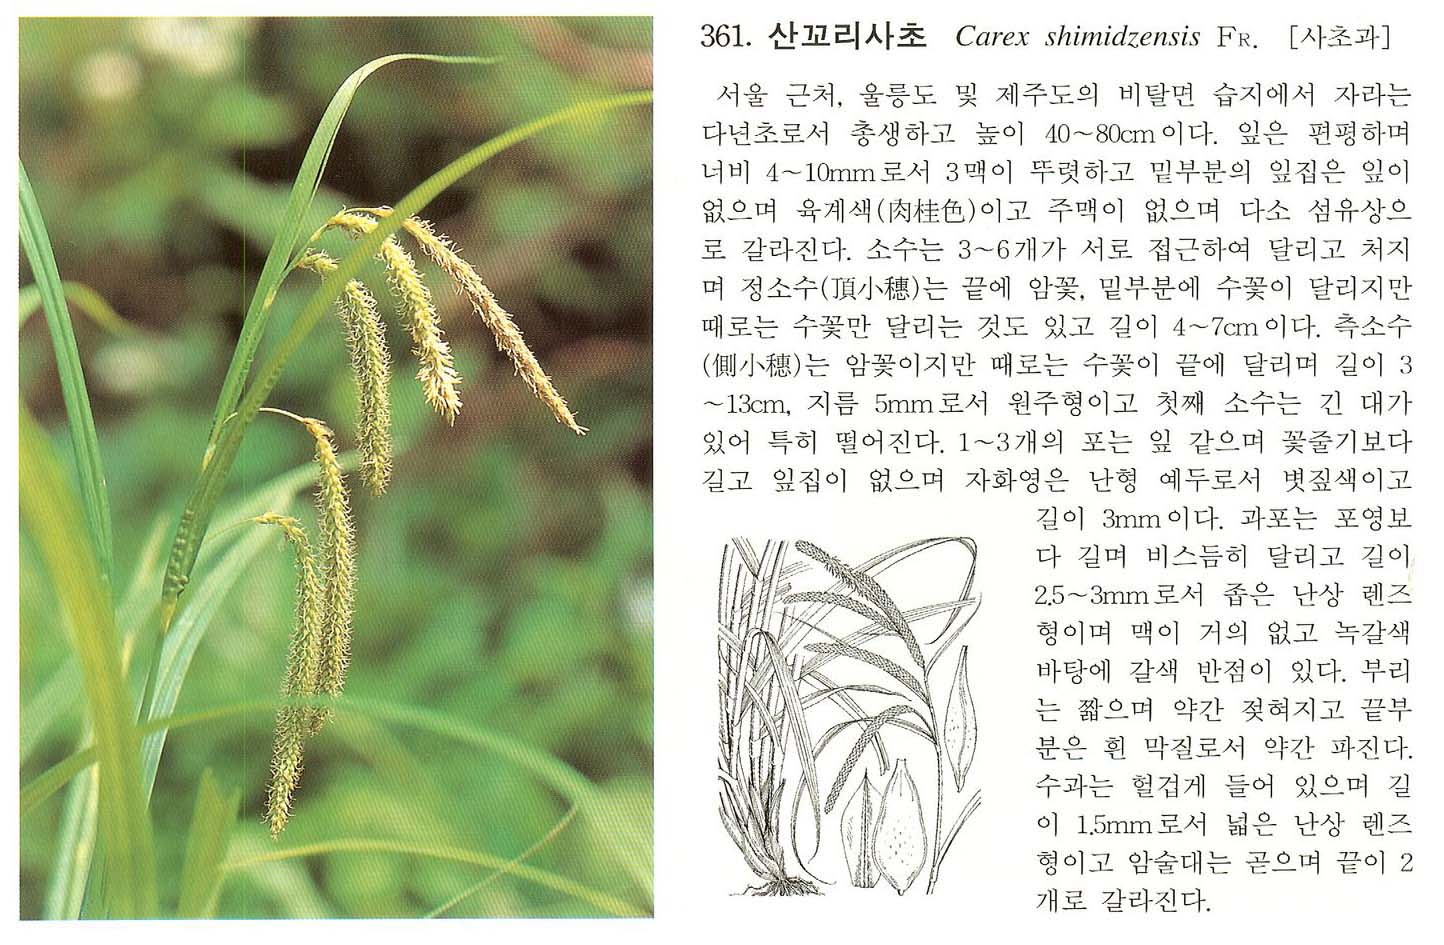 361. 산꼬리사초 Carex shimidzensis FR. [사초과]
서울 근처, 울릉도 및 제주도의 비탈면 습지에서 자라는
다년초로서 총생하고 높이 40~80cm이다. 잎은 편평하며
너비 4~10mm로서 3맥이 뚜렷하고 밑부분의 잎집은 잎이
없으며 육계색(肉桂色)이고 주맥이 없으며 다소 섬유상으
로 갈라진다. 소수는 3~6개가 서로 접근하여 달리고 처지
며 정소수(頂小穗)는 끝에 암꽃, 밑부분에 수꽃이 달리지만
때로는 수꽃만 달리는 것도 있고 길이 4~7cm이다. 측소수
(側小穗)는 암꽃이지만 때로는 수꽃이 끝에 달리며 길이 3
~13cm, 지름 5mm로서 원주형이고 첫째 소수는 긴 대가
있어 특히 떨어진다. 1~3개의 포는 잎 같으며 꽃줄기보다
길고 잎집이 없으며 자화영은 난형 예두로서 볏짚색이고
길이 3mm이다. 과포는 포영보
다 길며 비스듬히 달리고 길이
2.5~3mm로서 좁은 난상 렌즈
형이며 맥이 거의 없고 녹갈색
바탕에 갈색 반점이 있다. 부리
는 짧으며 약간 젖혀지고 끝부
분은 흰 막질로서 약간 파진다.
수과는 헐겁게 들어 있으며 길
이 1.5mm로서 넓은 난상 렌즈
형이고 암술대는 곧으며 끝이 2
개로 갈라진다.